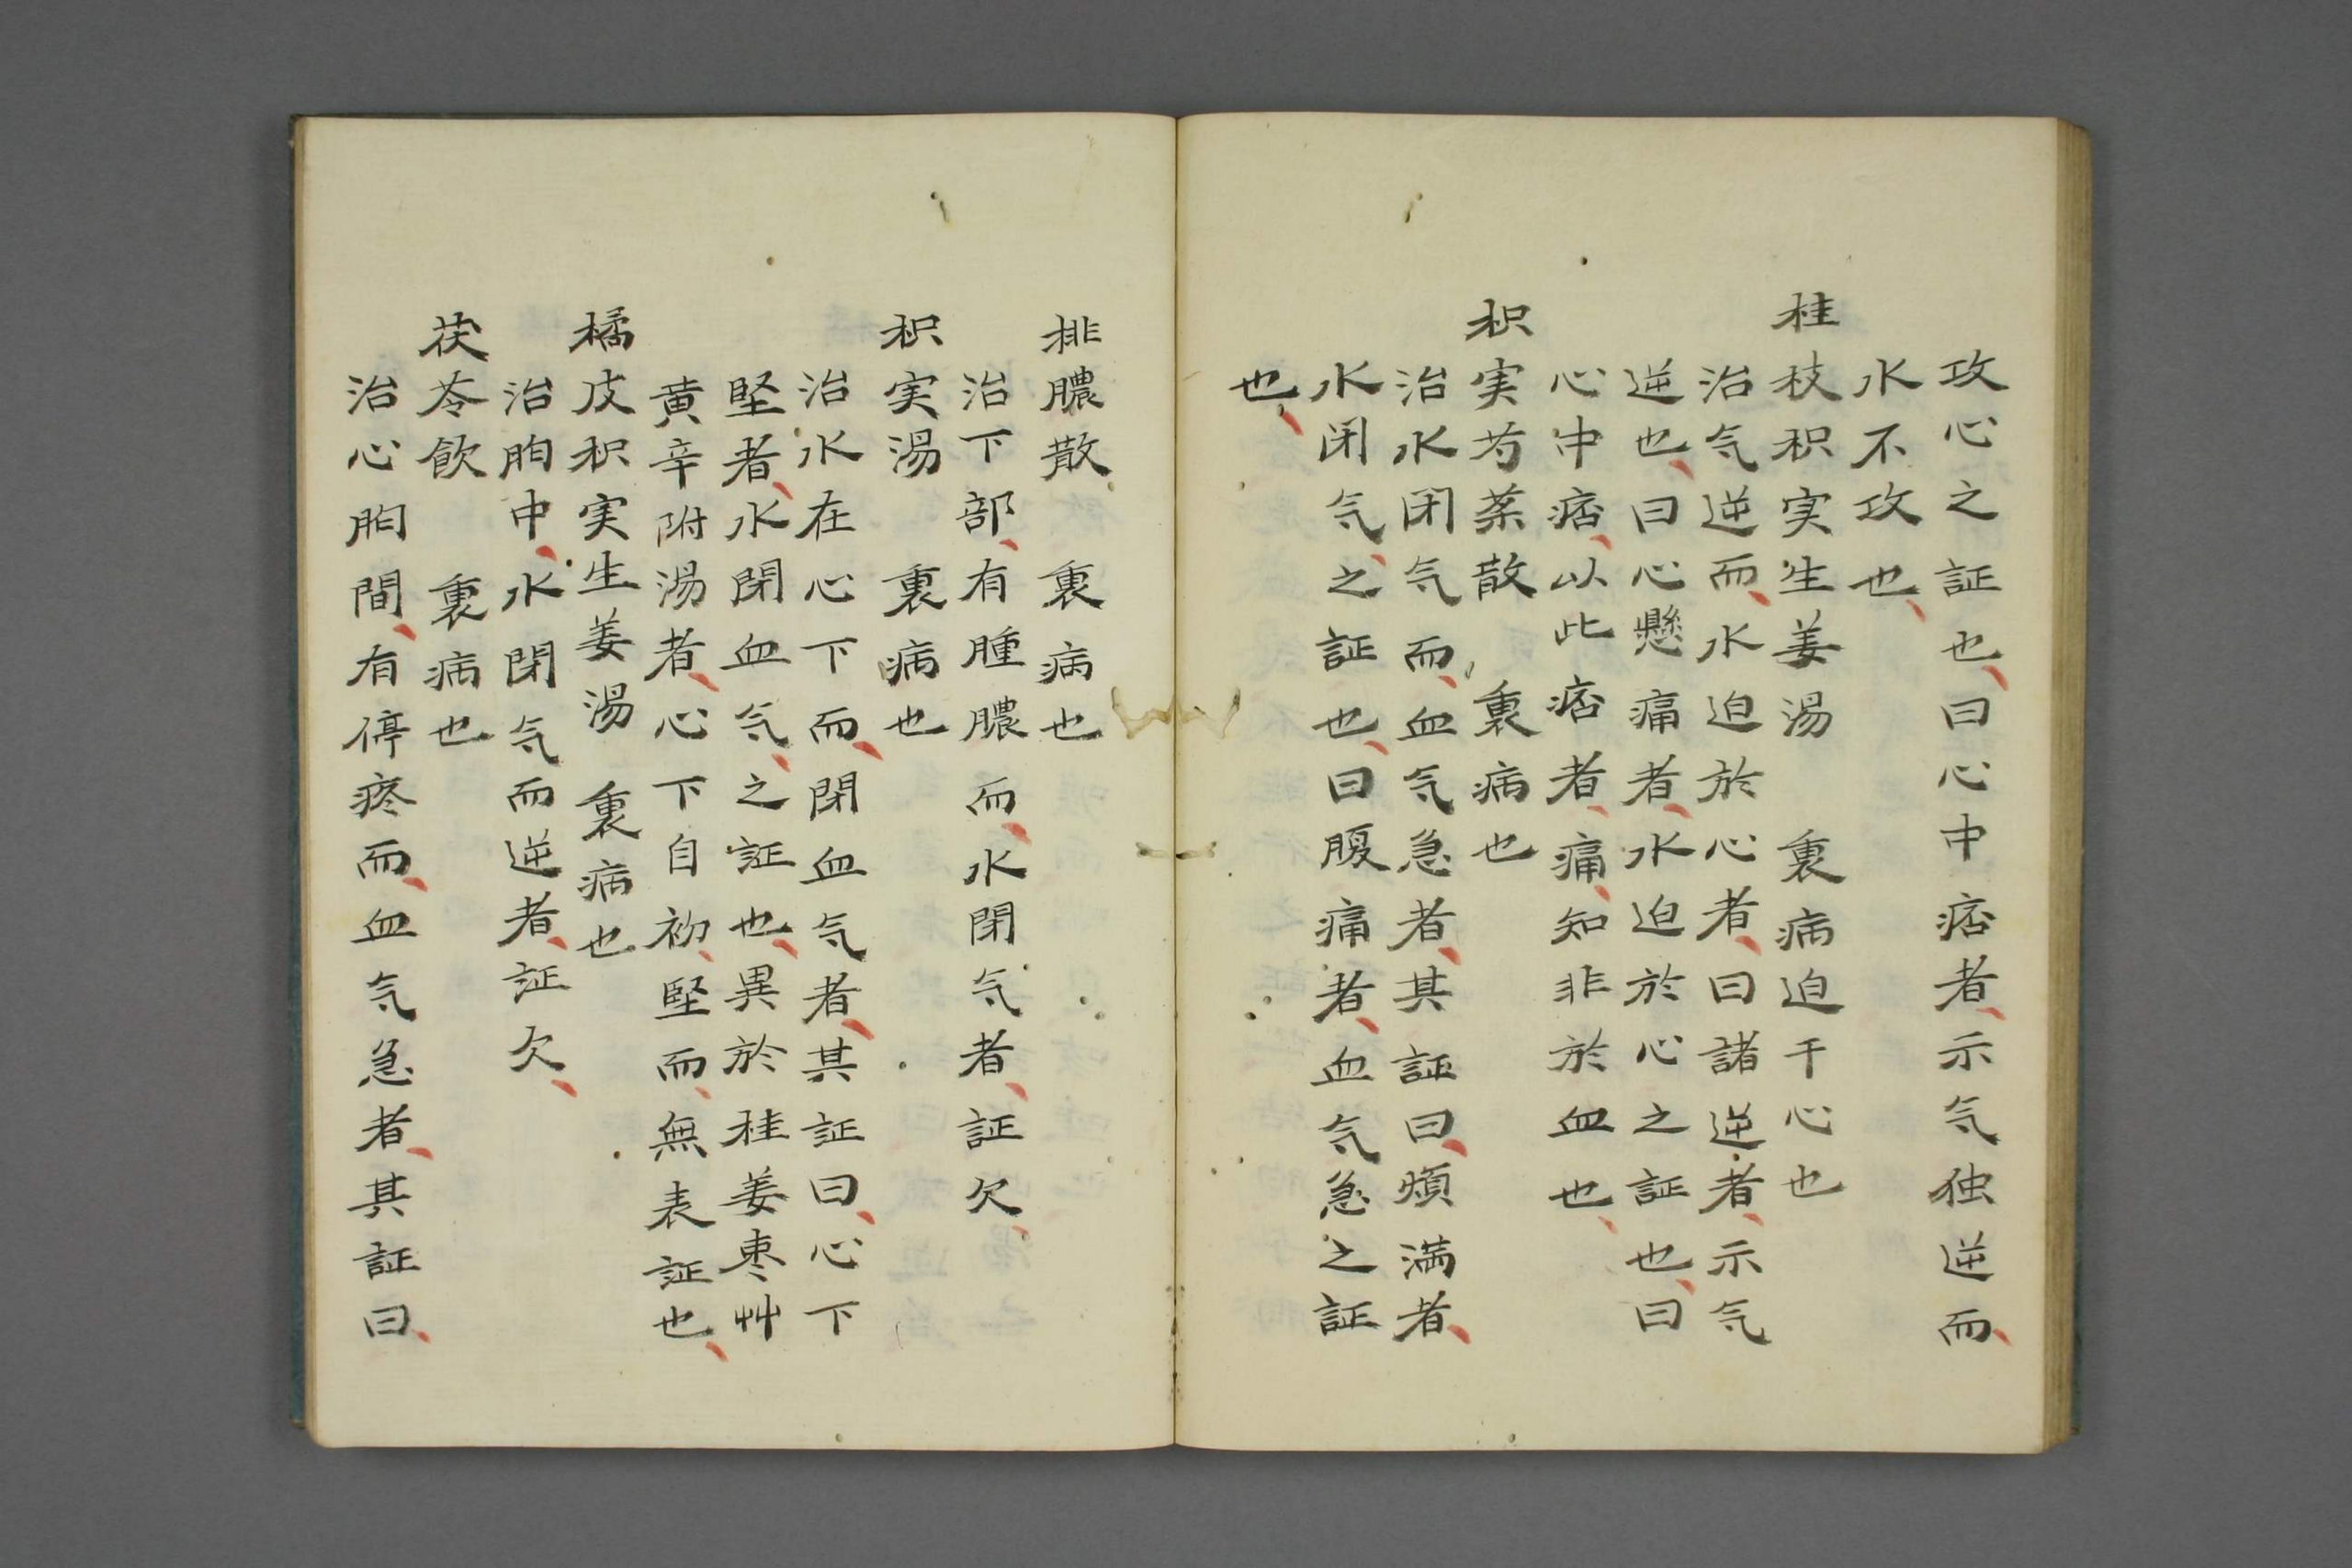 攻心之証也、曰心中痞者、示气独逆而、
水不攻也、
桂枝枳実生姜湯　裏病迫于心也
治气逆而、水迫於心者、曰諸逆者、示气
逆也、曰心懸痛者、水迫於心之証也、曰
心中痞、以此痞者、痛、知非於血也、
枳実芍薬散　裏病也
治水闭气而、血气急者、其証曰、煩満者、
水闭气、之証也、曰腹痛者、血气急之証
也、
排膿散　裏病也
治下部、有腫膿而、水閉气者、証欠、
枳実湯　裏病也
治水在心下而、閉血气者、其証曰、心下
堅者、水閉血气、之証也、異於桂姜棗艸
黄辛附湯者、心下自初、堅而、無表証也、
橘皮枳実生姜湯　裏病也
治胸中、水閉气而逆者、証欠、
茯苓飲　裏病也
治心胸間、有停痰而、血气急者、其証曰、